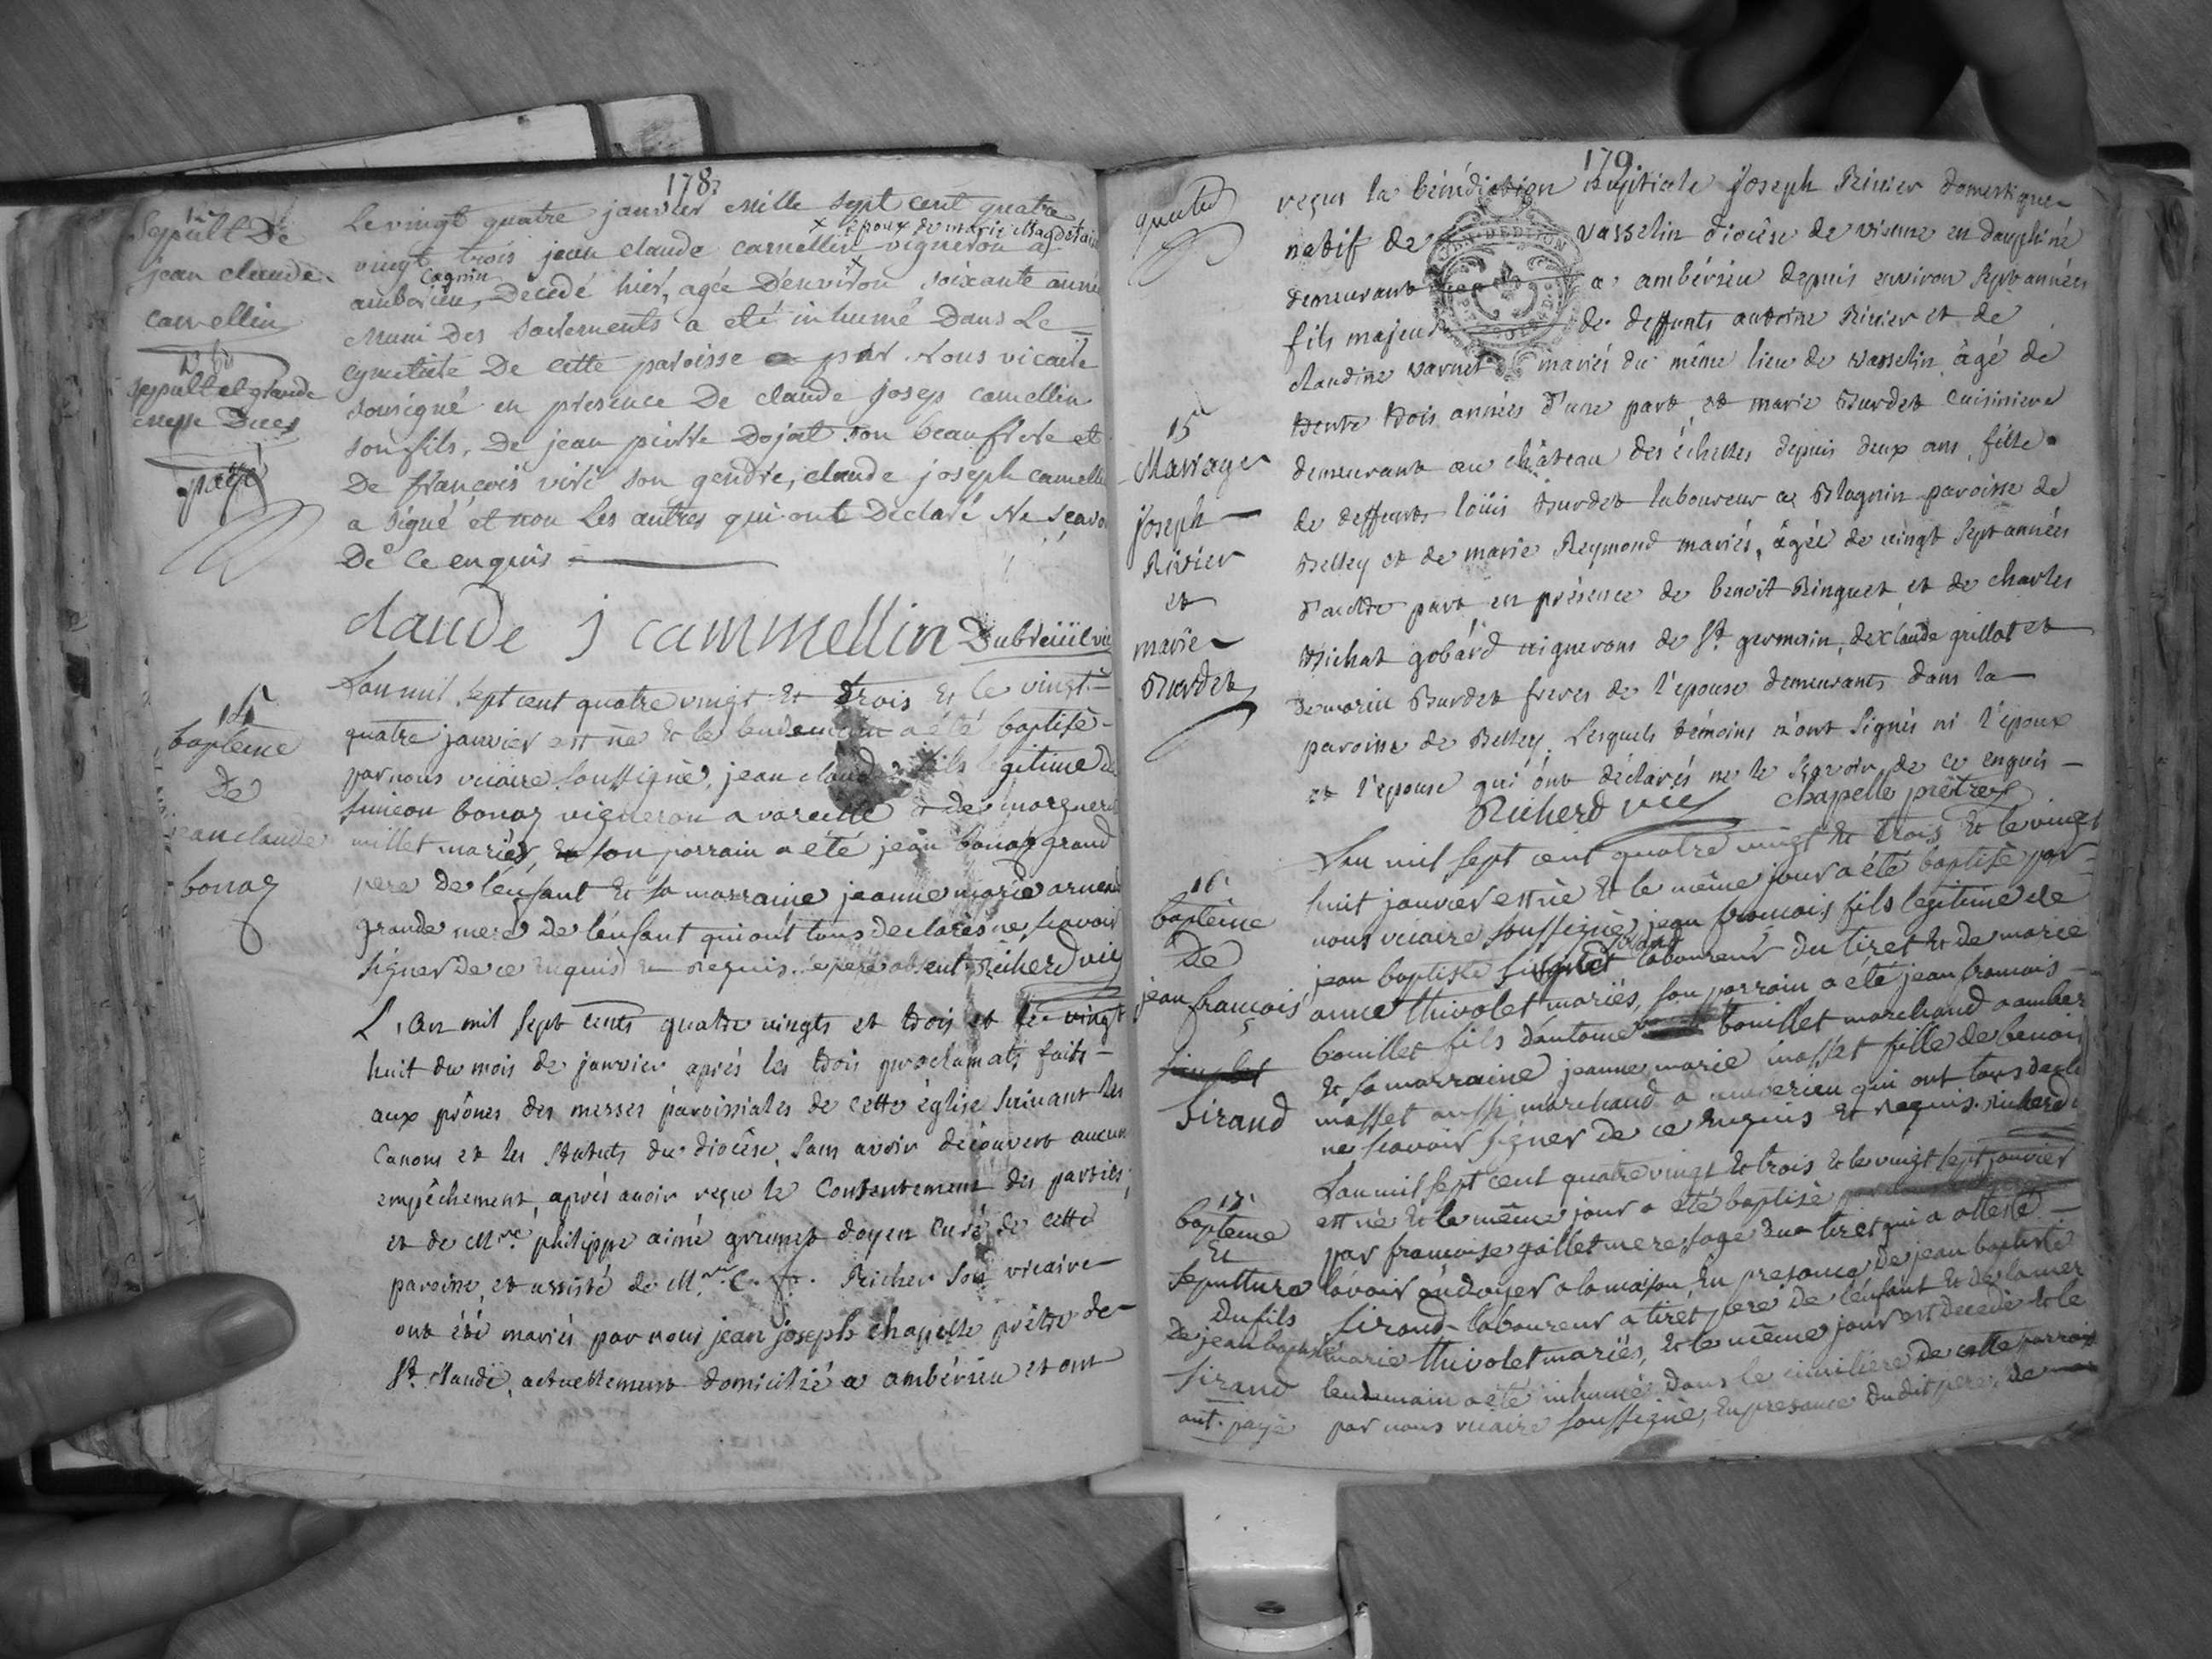 178
Sepult De
jean claude
camellin
sepult et grande
messe Dues
payé
Le vingt quatre janvier mille sept cent quatre
x époux de marie Magdelaine
vingt trois jean claude camellin vigneron a
Cagnin
amberieu, Decedé hier, agée D'environ soixante année
Muni Des sacrements a eté inhumé Dans Le
cymetiere De cette paroisse par Nous vicaire
sousigné en presence De claude josep camellin
son fils, De jean pierre Dojat son beaufrere et
De françois viré son gendre, claude joseph camelli
a signé et non Les autres qui ont Declaré Ne sçavo
De ce enquis
claude j cammellin Dubreüil vic
14
baptême
De
jean claude
bonaz
L'an mil sept cent quatre vingt et trois et le vingt
quatre janvier est né et le lendemain a été baptisé
par nous vicaire soussigné, jean claude fils légitime de
simeon bonaz vigneron a vareille et de marguerit
millet mariés, son parrain a été jean bonaz grand
pere de l'enfant et sa marraine jeanne marie
grande mere de l'enfant qui ont tous declarés ne scavoir
signer de ce enquis et requis. le pere absent. Richerd vic
L'an mil sept cents quatre vingts et trois et le vingt
huit du mois de janvier aprés les trois proclamats faits
aux prônes des messes paroissiales de cette église suivant les
Canons et les statuts du diocèse, sans avoir découvert aucun
empêchement, aprés avoir reçu le Consentement des parties,
et de Mre philippe aimé grumet doyen Curé de cette
paroisse, et assisté de Mre C. f. Richer son vicaire
ont été mariés par nous jean joseph chapelle prêtre de
St Claude, actuellement domicilié a ambérieu et ont
179
reçus la bénédiction nuptiale Joseph Rivier domestique
natif de vasselin diocèse de vienne en dauphiné
demeurant a ambérieu depuis environ sept années
fils majeur de deffunts antoine Rivier et de
claudine varnet mariés du même lieu de vasselin, âgé de
trente trois années d'une part, et marie Burdet cuisiniere
15
Mariage
joseph
Rivier
et
marie
Burdet
demeurant au château des échelles depuis deux ans, fille
de deffunts loüis Burdet laboureur a Blagnin paroisse de
Belley et de marie Reymond mariés, âgée de vingt sept années
d'autre part en présence de benoit Ringuet et de charles
michat gobard vignerons de St germain, de claude grillot et
Burdet freres de l'epouse demeurants dans la
paroisse de Belley. Lesquels témoins n'ont signés ni l'époux
et l'epouse qui ont déclarés ne le sçavoir de ce enquis
Richerd vic chapelle prêtre
16
baptême
De
jean françois
sirand
L'an mil sept cent quatre vingt et trois et le vingt
huit janvier est né et le même jour a été baptisé par
nous vicaire soussigné, jean françois fils légitime de
sirand
jean baptiste laboureur du tiret et de marie
anne thivolet mariés, son parrain a été jean francois
bouillet fils d'antoine bouillet marchand a amber
et sa marraine jeanne marie masset fille de benoit
masset aussi marchand a amberieu qui ont tous decla
ne scavoir signer de ce enquis et requis. Richerd
17
baptême
Et
sepulture
Du fils
De jean baptiste
sirand
ant. payé
L'an mil sept cent quatre vingt et trois et le vingt sept janvier
est né et le même jour a été baptisé
par françoise gallet mere sage du tiret qui a attesté
l'avoir ondoyer a la maison, en presance de jean baptiste
sirand laboureur a tiret pere de l'enfant et de la mer
marie thivolet mariés, et le même jour est decedé et le
lendemain a été inhumé dans le cimitiere de cette parroisse
par nous vicaire soussigné, en presance du dit pere, de